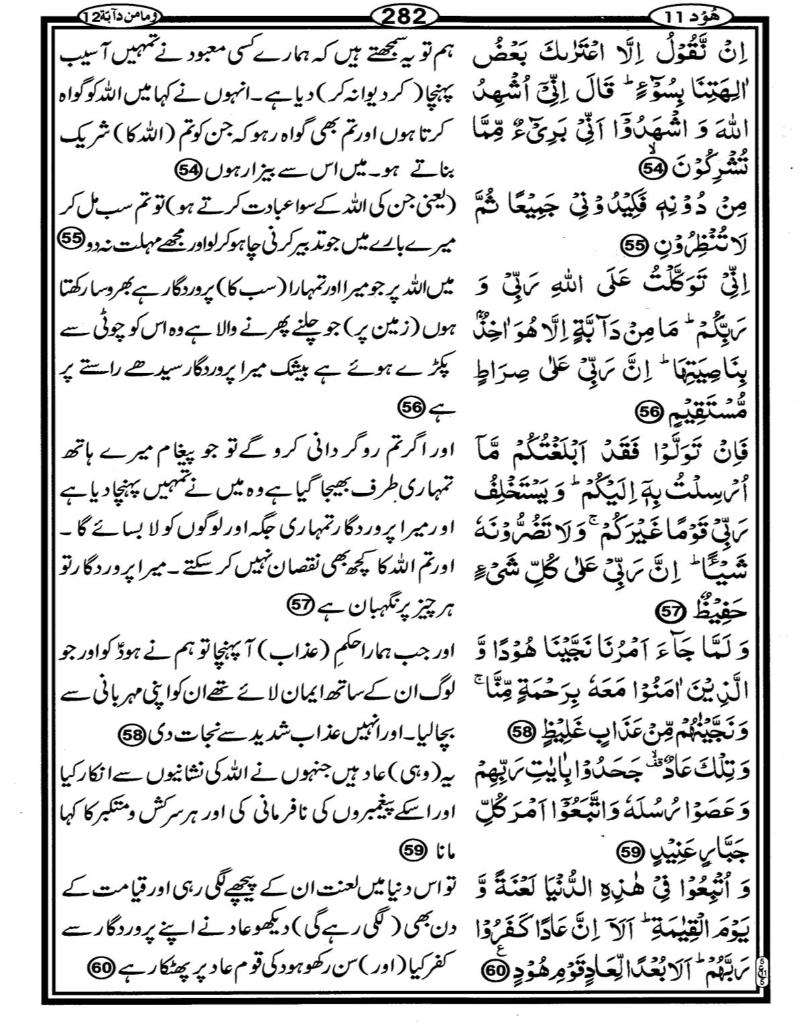 هُوۡد 11
282
وَمَا مِنۡ دَآبَّة 12
اِنۡ نَّقُوۡلُ اِلَّا اعۡتَرٰٮكَ بَعۡضُ
اٰلِهَتِنَا بِسُوۡٓءٍ‌ ؕ قَالَ اِنِّىۡۤ اُشۡهِدُ
اللّٰهَ وَ اشۡهَدُوۡۤا اَنِّىۡ بَرِىۡٓءٌ مِّمَّا
تُشۡرِكُوۡنَ ۙ‏ 54
مِنۡ دُوۡنِهٖ‌ فَكِيۡدُوۡنِىۡ جَمِيۡعًا ثُمَّ
لَا تُنۡظِرُوۡنِ‏ 55
اِنِّىۡ تَوَكَّلۡتُ عَلَى اللّٰهِ رَبِّىۡ وَ
رَبِّكُمۡ‌ ؕ مَا مِنۡ دَآبَّةٍ اِلَّا هُوَ اٰخِذٌۢ
بِنَاصِيَتِهَا‌ ؕ اِنَّ رَبِّىۡ عَلٰى صِرَاطٍ
مُّسۡتَقِيۡمٍ‏ 56
فَاِنۡ تَوَلَّوۡا فَقَدۡ اَبۡلَغۡتُكُمۡ مَّاۤ
اُرۡسِلۡتُ بِهٖۤ اِلَيۡكُمۡ‌ ؕ وَيَسۡتَخۡلِفُ
رَبِّىۡ قَوۡمًا غَيۡرَكُمۡ‌ۚ وَلَا تَضُرُّوۡنَهٗ
شَيۡــًٔا‌ ؕ اِنَّ رَبِّىۡ عَلٰى كُلِّ شَىۡءٍ
حَفِيۡظٌ‏ 57
وَ لَمَّا جَآءَ اَمۡرُنَا نَجَّيۡنَا هُوۡدًا وَّ
الَّذِيۡنَ اٰمَنُوۡا مَعَهٗ بِرَحۡمَةٍ مِّنَّا ۚ
وَ نَجَّيۡنٰهُمۡ مِّنۡ عَذَابٍ غَلِيۡظٍ‏ 58
وَ تِلۡكَ عَادٌ‌ ۛ جَحَدُوۡا بِاٰيٰتِ رَبِّهِمۡ
وَ عَصَوۡا رُسُلَهٗ وَ اتَّبَعُوۡۤا اَمۡرَ كُلِّ
جَبَّارٍ عَنِيۡدٍ‏ 59
وَ اُتۡبِعُوۡا فِىۡ هٰذِهِ الدُّنۡيَا لَعۡنَةً وَّ
يَوۡمَ الۡقِيٰمَةِ‌ ؕ اَلَاۤ اِنَّ عَادًا كَفَرُوۡا
رَبَّهُمۡ‌ ؕ اَلَا بُعۡدًا لِّعَادٍ قَوۡمِ هُوۡدٍ‏ 60
ہم تو یہ سمجھتے ہیں کہ ہمارے کسی معبود نے تمہیں آسیب
پہنچا (کر دیوانہ کر) دیا ہے۔ انہوں نے کہا میں اللہ کو گواہ
کرتا ہوں اور تم بھی گواہ رہو کہ جن کو تم (اللہ کا) شریک
بناتے ہو۔ میں اس سے بیزار ہوں 54
(یعنی جن کی اللہ کے سوا عبادت کرتے ہو) تو تم سب مل کر
میرے بارے میں جو تدبیر کرنی چاہو کرلو اور مجھے مہلت نہ دو 55
میں اللہ پر جو میرا اور تمہارا (سب کا) پروردگار ہے بھروسا رکھتا
ہوں (زمین پر) جو چلنے پھرنے والا ہے وہ اس کو چوٹی سے
پکڑے ہوئے ہے بیشک میرا پروردگار سیدھے راستے پر
ہے 56
اور اگر تم روگردانی کرو گے تو جو پیغام میرے ہاتھ
تمہاری طرف بھیجا گیا ہے وہ میں نے تمہیں پہنچا دیا ہے
اور میرا پروردگار تمہاری جگہ اور لوگوں کو لا بسائے گا۔
اور تم اللہ کا کچھ بھی نقصان نہیں کر سکتے۔ میرا پروردگار تو
ہر چیز پر نگہبان ہے 57
اور جب ہمارا حکمِ (عذاب) آ پہنچا تو ہم نے ہودؑ کو اور جو
لوگ ان کے ساتھ ایمان لائے تھے ان کو اپنی مہربانی سے
بچا لیا۔ اور انہیں عذاب شدید سے نجات دی 58
یہ (وہی) عاد ہیں جنہوں نے اللہ کی نشانیوں سے انکار کیا
اور اسکے پیغمبروں کی نافرمانی کی اور ہر سرکش و متکبر کا کہا
مانا 59
تو اس دنیا میں لعنت ان کے پیچھے لگی رہی اور قیامت کے
دن بھی (لگی رہے گی) دیکھو عاد نے اپنے پروردگار سے
کفر کیا (اور) سن رکھو ہود کی قوم عاد پر پھٹکار ہے 60